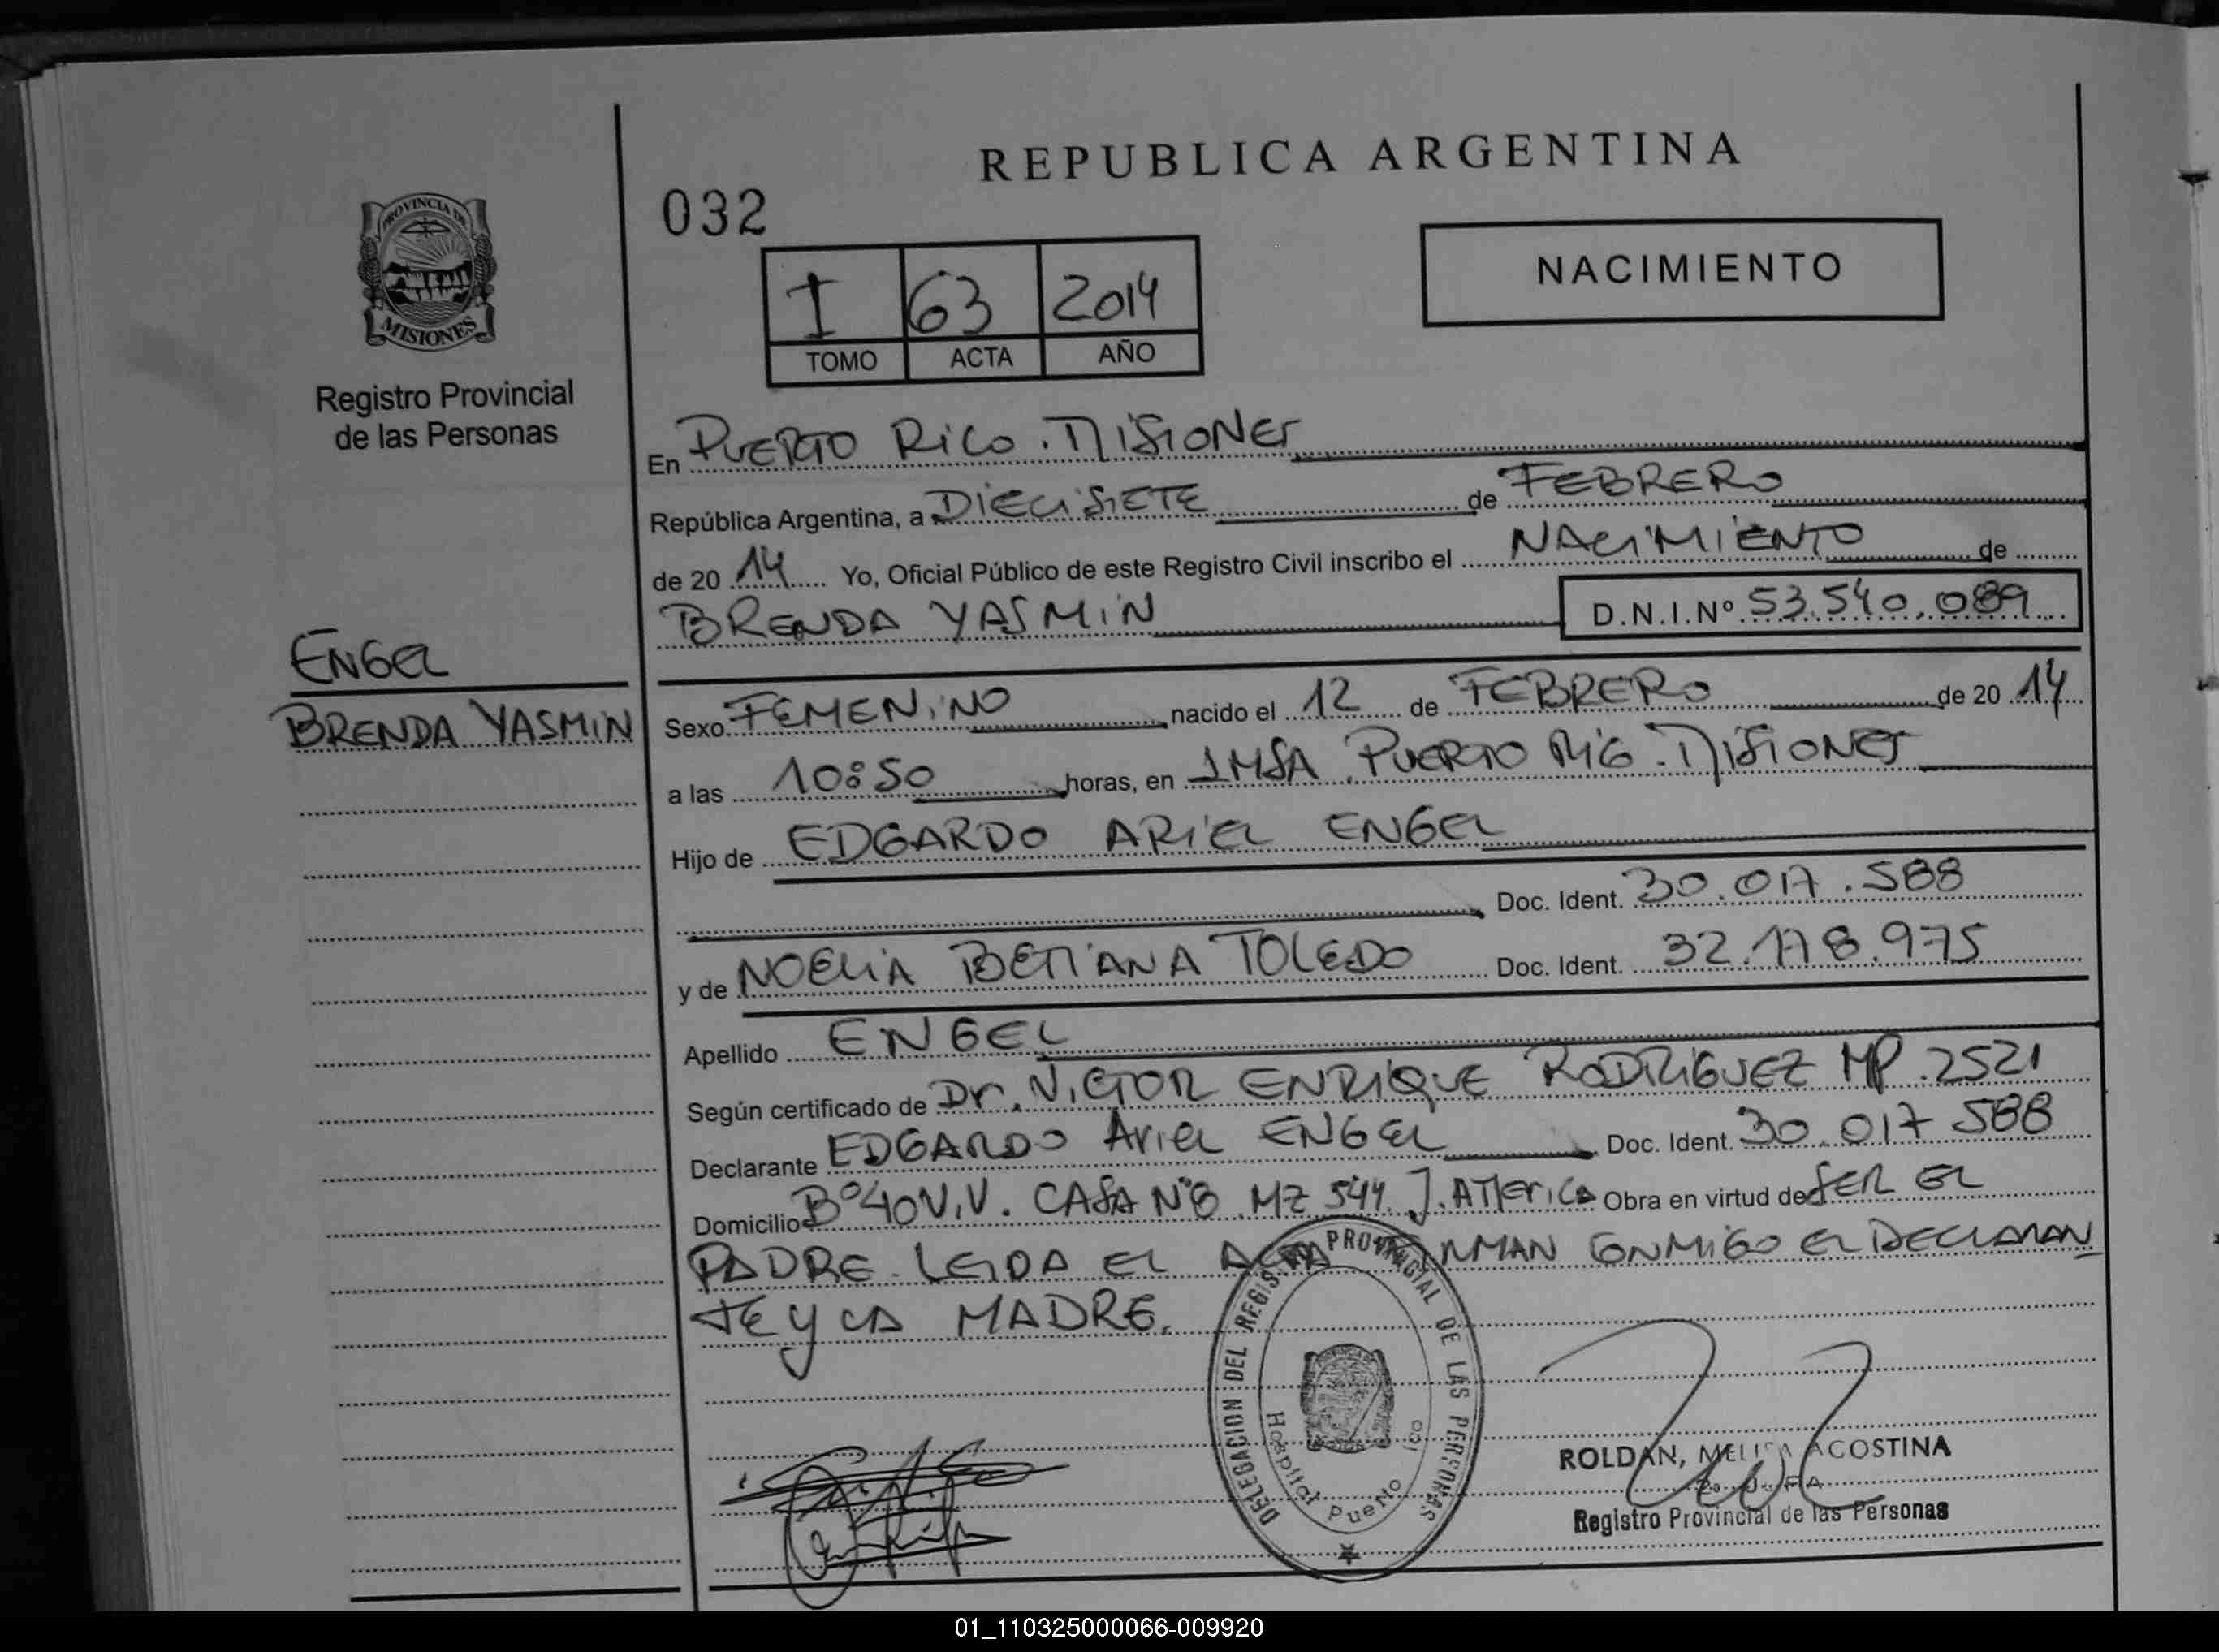 REPUBLICA ARGENTINA
032
NACIMIENTO
I 63 2014
TOMO ACTA AÑO
PROVINCIA DE
MISIONES
Registro Provincial
de las Personas
ENGEL
BRENDA YASMIN
En PUERTO RICO. MISIONES
República Argentina, a DIECISIETE de FEBRERO
de 20 14 Yo, Oficial Público de este Registro Civil inscribo el NACIMIENTO de
BRENDA YASMIN D.N.I.Nº 53.540.089
Sexo FEMENINO nacido el 12 de FEBRERO de 20 14
a las 10:50 horas, en IMSA. PUERTO RICO. MISIONES
Hijo de EDGARDO ARIEL ENGEL
Doc. Ident. 30.017.588
y de NOELIA BETIANA TOLEDO Doc. Ident. 32.178.975
Apellido ENGEL
Según certificado de Dr. VICTOR ENRIQUE RODRIGUEZ MP.2521
Declarante EDGARDO ARIEL ENGEL Doc. Ident. 30.017.588
Domicilio Bº 40 V.V. CASA Nº8 MZ 544 J. AMERICA Obra en virtud de SER EL
PADRE. LEIDA EL ACTA FIRMAN CONMIGO EL DECLARAN
TE Y LA MADRE.
DELEGACION DEL REGISTRO PROVINCIAL DE LAS PERSONAS
Hospital Puerto
ROLDAN, MELISA AGOSTINA
Registro Provincial de las Personas
01_110325000066-009920